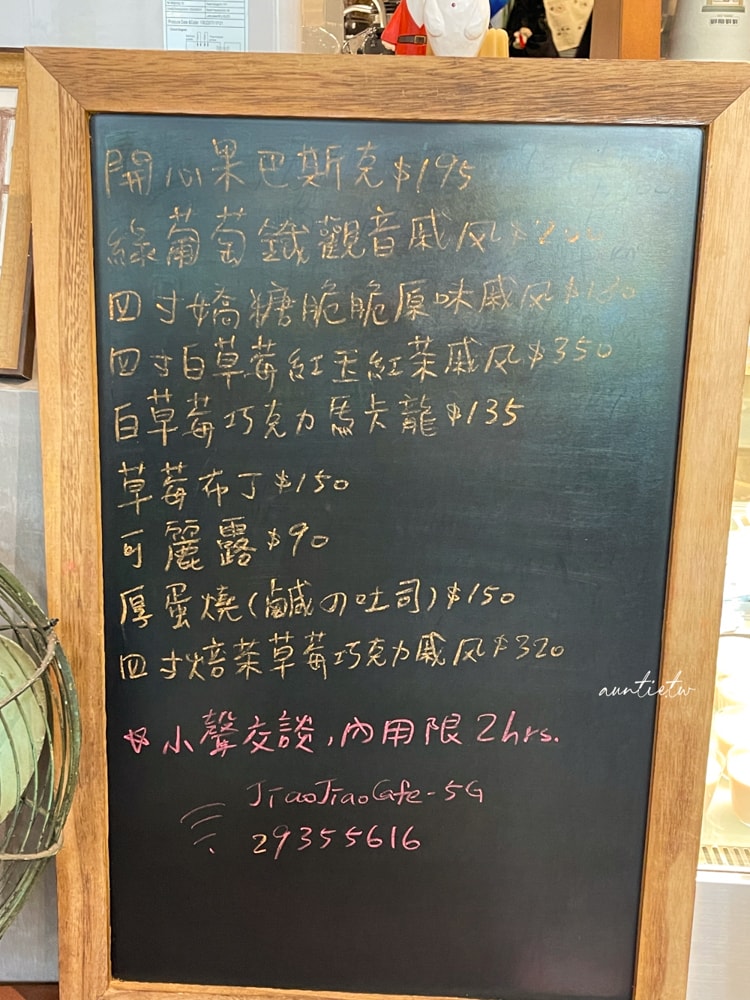 開心果巴斯克$195
綠葡萄鐵觀音戚风$200
四寸嬌糖脆脆原味戚风$180
四寸白草莓紅玉紅茶戚风$350
白草莓巧克力馬卡龍$135
草莓布丁$150
可麗露$90
厚蛋燒(鹹の吐司)$150
四寸焙茶草莓巧克力戚风$320
auntietw
小聲交談,內用限2hrs.
JiaoJiaoCafe-5G
29355616